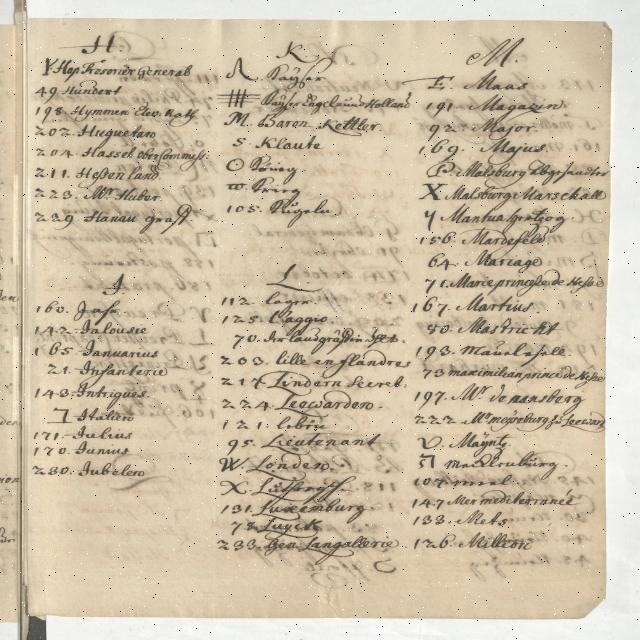 H.
Hop Tresorier General
49 Hundert
198. Hymmen Clev. Rath
202. Huguetan
204. Hassel obercommiss:
211. Heßen land
223. Mr Huber
239 Hanau graff
J
160. Jahr
142. Jalousie
165. Januarius
21. Infanterie
143. Intrigues
Italien
171. Julius
170. Junius
230. Jubelen
K
Kayser
Kayser Engelland Holland
M. Baron Kettler
S. Klaute
O König
Krieg
105. Kugeln
L
112. lager
125. Laggio
70.
203. lille en flandres
217 Lindern Secret.
224. Leewarden.
121. lebre
95. Lieutenant
W Londen.
X.
131. Luxemburg
78. Luyck
233. Gen. Langallerie.
M.
E. Maas
191. Magazin
92. Major
169. Majus
Malsburg Abgesandter
X Malsburg Marschall
Mantua
156. Mardefeld
64. Mariage
71. Marie princesse de Hesse
167. Martius.
80. Mastricht
193. Maul esell
73 maximilian prince de Hesse
197. Mr. de mansberg
222. Mr meyreburg zu Leeward
Mayntz
Mecklenburg.
107. meel
147 Mer mediterranée
133. Mets
126. Million